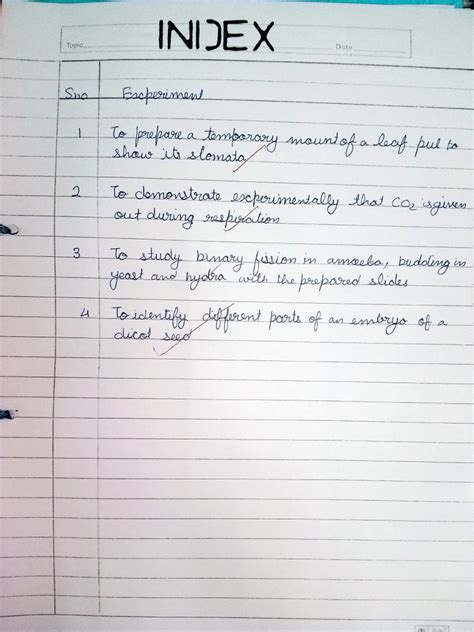 INDEX
Topic
Date
Sno Experiment
1 To prepare a temporary mount of a leaf pul to
show its stomata
2 To demonstrate experimentally that CO2 is given
out during respiration
3 To study binary fission in amoeba, budding in
yeast and hydra with the prepared slides
4 To identify different parts of an embryo of a
dicot seed